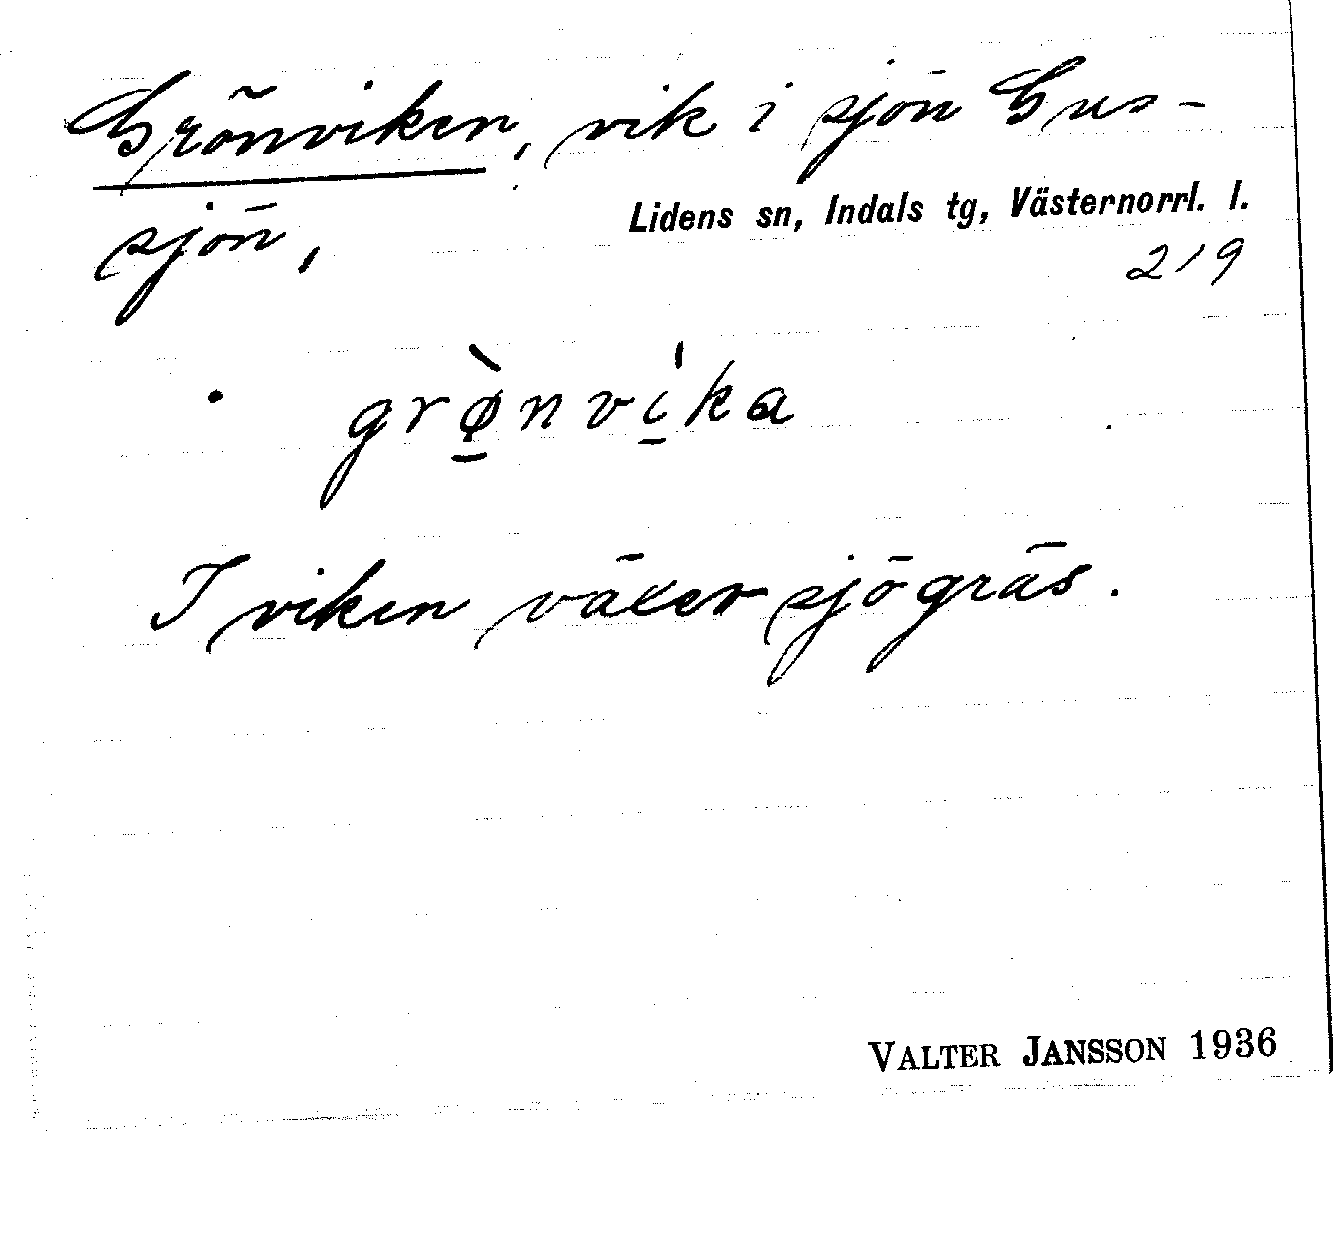 Grönviken, vik i sjön Gus-
sjön,
Lidens sn, Indals tg, Västernorrl. l.
219
grø̠̀nvi̠̍ka
I viken växer sjögräs.
VALTER JANSSON 1936